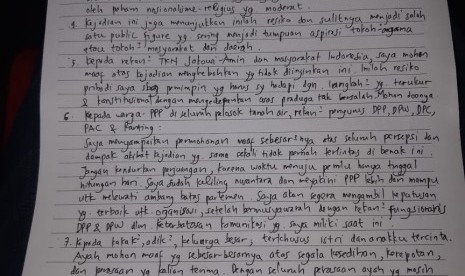 oleh paham nasionalisme-religius yg moderat.
4. Kejadian ini juga menunjukkan inilah resiko dan sulitnya menjadi salah
satu public figure yg sering menjadi tumpuan aspirasi tokoh-agama
atau tokoh² masyarakat dan daerah.
5. Kepada rekan² TKN Jokowi-Amin dan masyarakat Indonesia, saya mohon
maaf atas kejadian menghebohkan yg tidak diinginkan ini. Inilah resiko
pribadi saya sbg pemimpin yg harus sy hadapi dgn langkah² yg terukur
& konstitusional dengan mengedepankan asas praduga tak bersalah. Mohon doanya.
6. Kepada warga PPP di seluruh pelosok tanah air, rekan² pengurus DPP, DPW, DPC,
PAC & Ranting:
Saya menyampaikan permohonan maaf sebesar²nya atas seluruh persepsi dan
dampak akibat kejadian yg sama sekali tidak pernah terlintas di benak ini.
Jangan kendurkan perjuangan, karena waktu menuju pemilu hanya tinggal
hitungan hari. Saya sudah keliling nusantara dan meyakini PPP lebih dari mampu
utk melewati ambang batas parlemen. Saya akan segera mengambil keputusan
yg terbaik utk organisasi, setelah bermusyawarah dengan rekan² fungsionaris
DPP & DPW dlm keterbatasan komunikasi yg saya miliki saat ini.
7. Kepada kakak², adik², keluarga besar, terkhusus istri dan anakku tercinta.
Ayah mohon maaf yg sebesar-besarnya atas segala kesedihan, kerepotan,
dan perasaan yg kalian terima. Dengan seluruh perasaan ayah yg masih